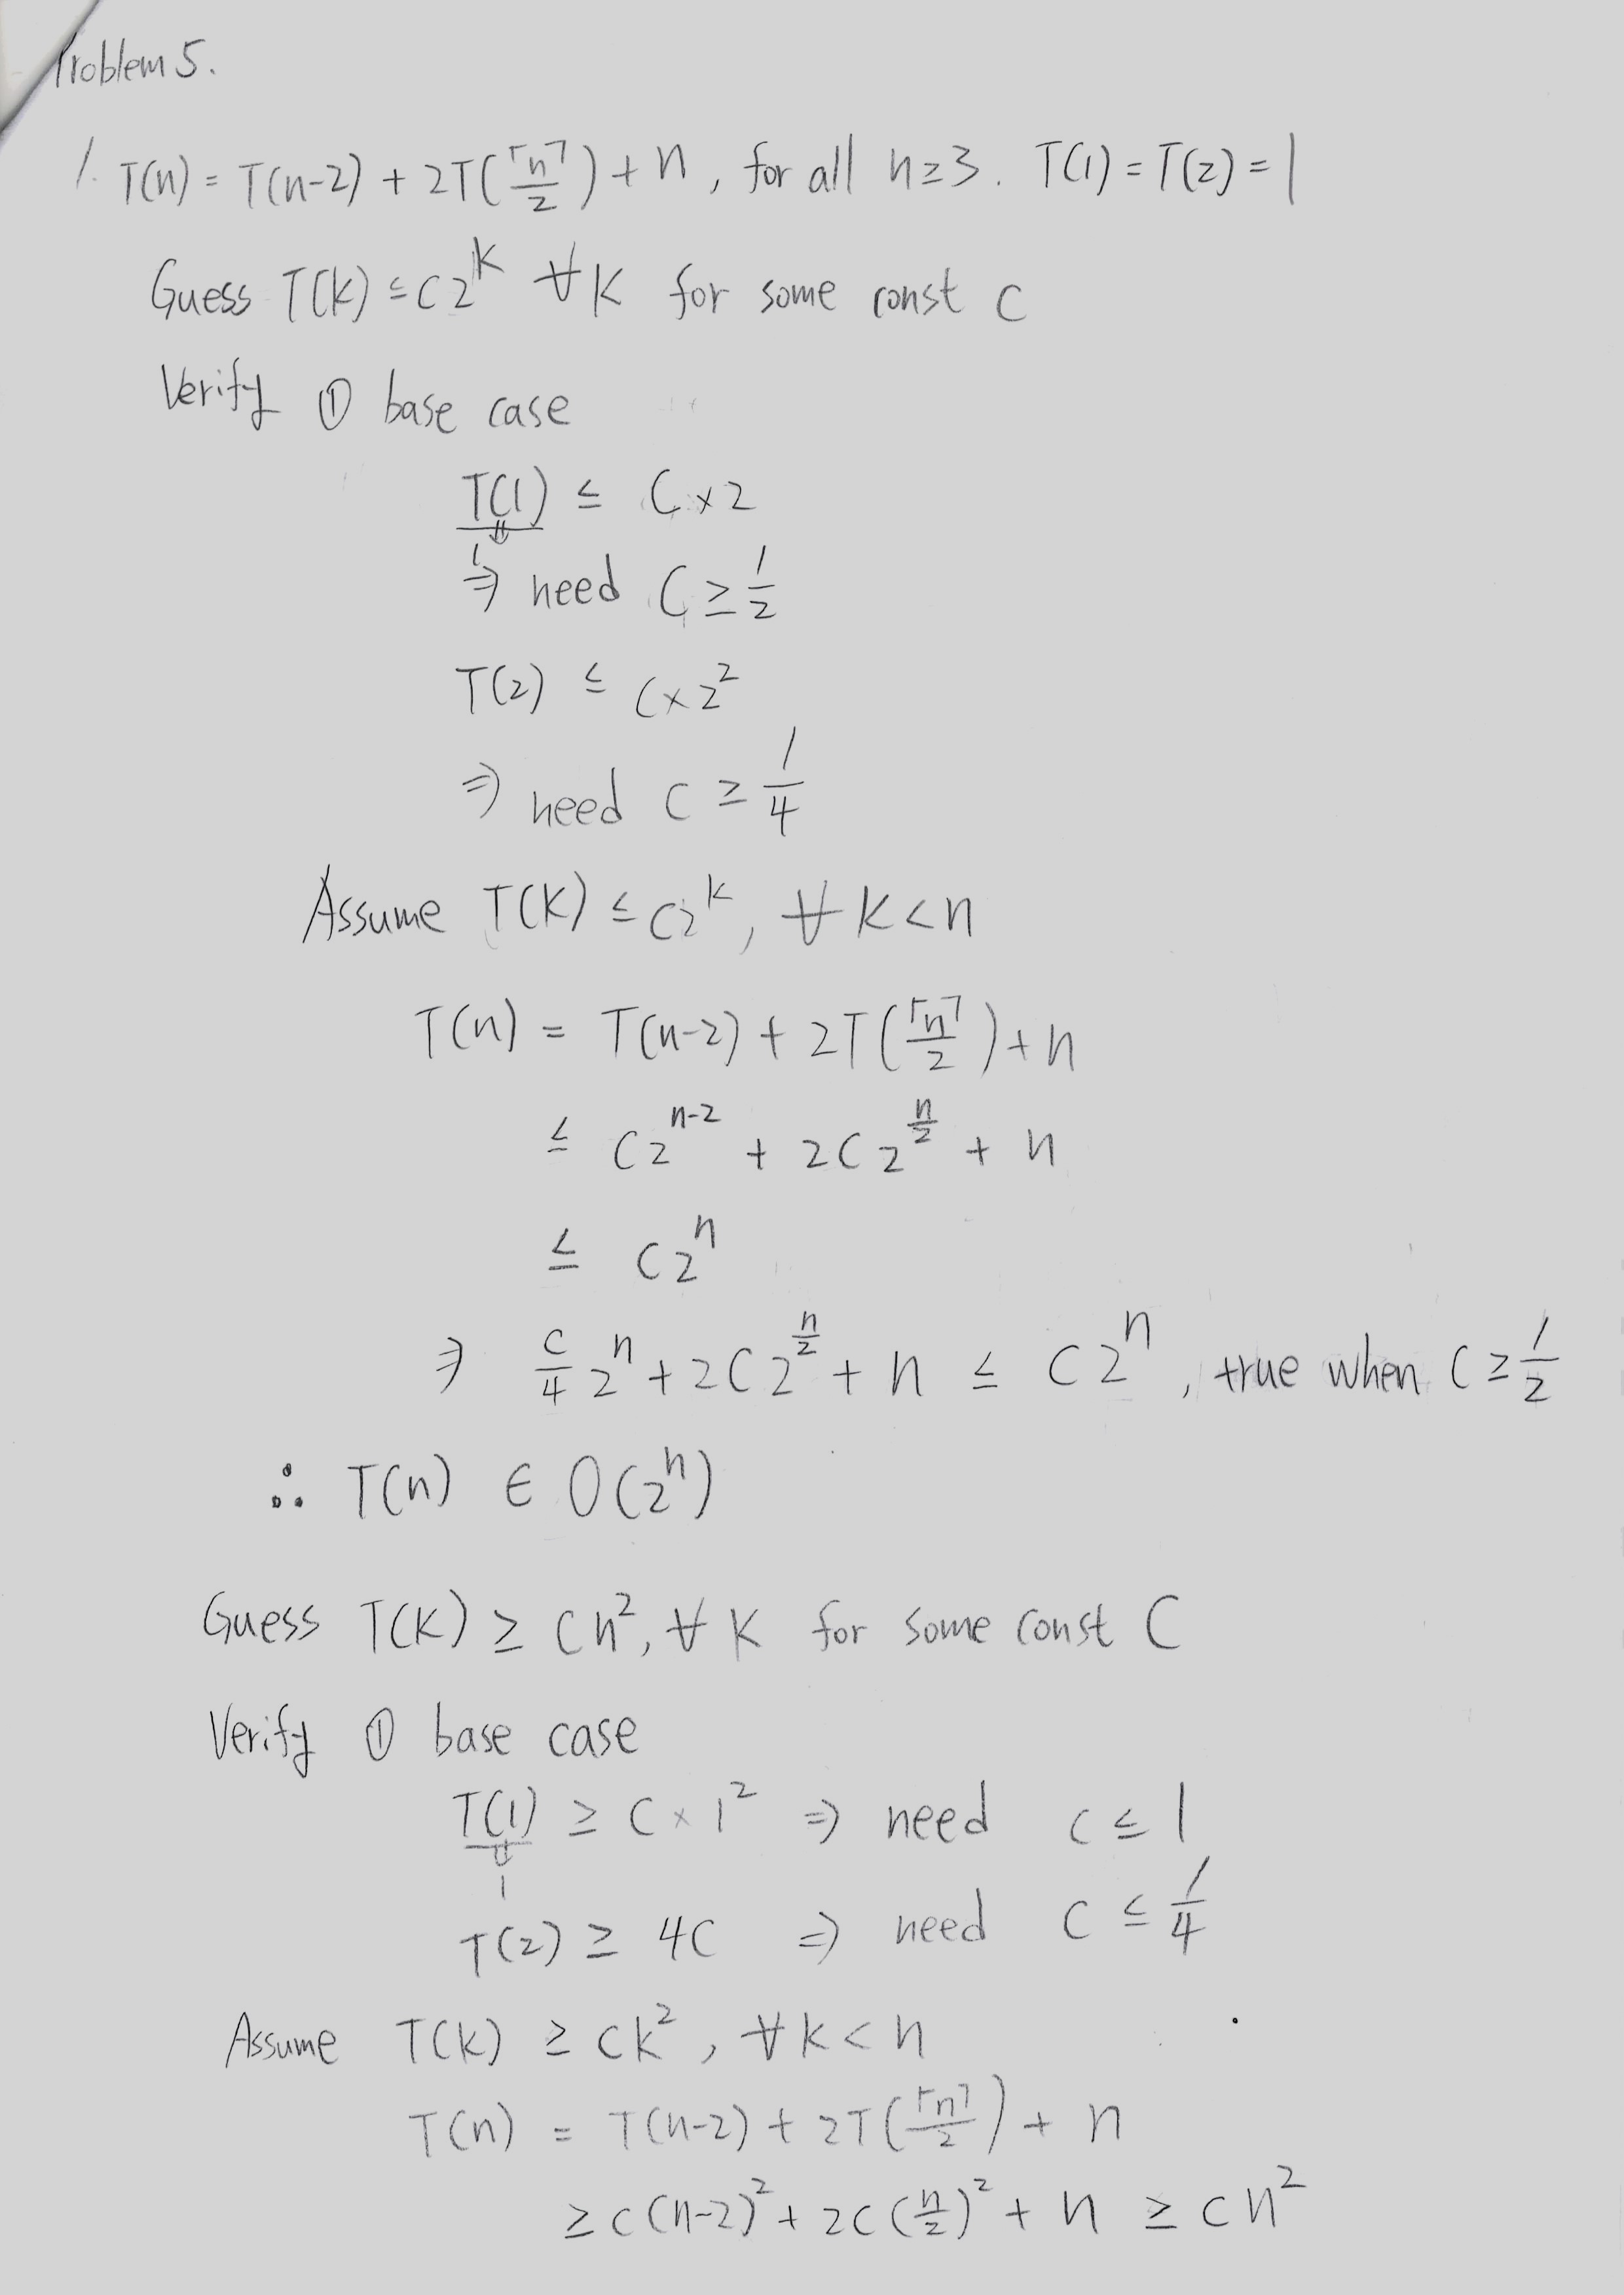 Problem 5.
1. T(n) = T(n-2) + 2T(⌈n⌉/2) + n, for all n ≥ 3. T(1) = T(2) = 1
Guess T(k) ≤ c2^k ∀k for some const c
Verify ① base case
T(1) ≤ C×2
1
⇒ need C ≥ 1/2
T(2) ≤ C×2^2
⇒ need C ≥ 1/4
Assume T(k) ≤ c2^k, ∀k<n
T(n) = T(n-2) + 2T(⌈n⌉/2) + n
≤ C2^(n-2) + 2C2^(n/2) + n
≤ C2^n
⇒ C/4 2^n + 2C2^(n/2) + n ≤ C2^n, true when C ≥ 1/2
∴ T(n) ∈ O(2^n)
Guess T(k) ≥ Cn^2, ∀k for some const C
Verify ① base case
T(1) ≥ C×1^2 ⇒ need C ≤ 1
1
T(2) ≥ 4C ⇒ need C ≤ 1/4
Assume T(k) ≥ Ck^2, ∀k<n
T(n) = T(n-2) + 2T(⌈n⌉/2) + n
≥ C(n-2)^2 + 2C(n/2)^2 + n ≥ Cn^2